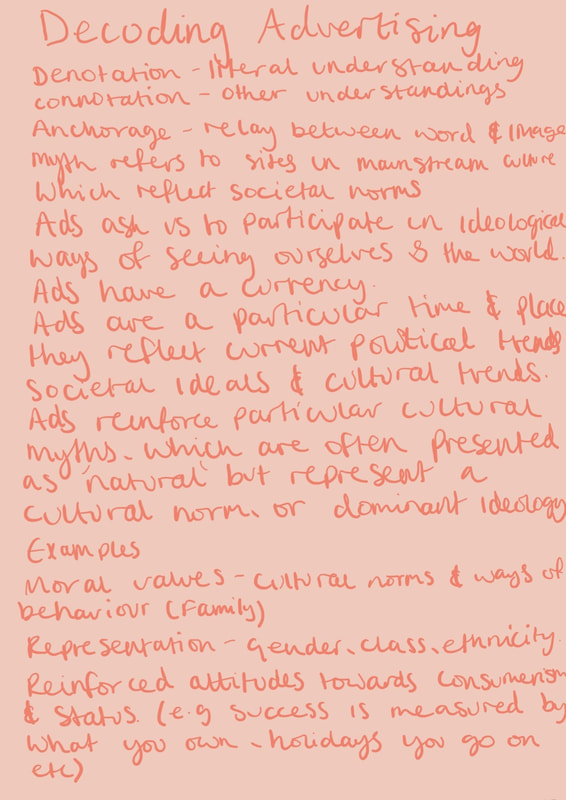 Decoding Advertising
Denotation - litteral understanding
connotation - other understandings
Anchorage - relay between word & image
myth refers to sites in mainstream culture
which reflect societal norms
Ads ask us to participate in ideological
ways of seeing ourselves & the world.
Ads have a currency.
Ads are a particular time & place
they reflect current political trends
societal ideals & cultural trends.
Ads reinforce particular cultural
myths, which are often presented
as 'natural' but represent a
cultural norm, or dominant ideology
Examples
Moral values - cultural norms & ways of
behaviour (Family)
Representation - gender, class, ethnicity.
Reinforced attitudes towards consumerism
& status. (e.g success is measured by
what you own, holidays you go on
etc)